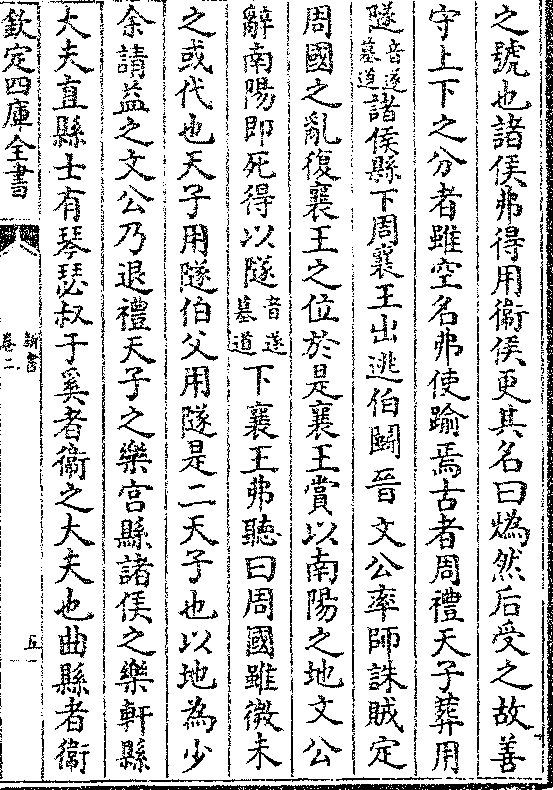 之號也諸侯弗得用衞侯更其名曰燬然后受之故善
守上下之分者雖空名弗使踰焉古者周禮天子葬用
隧音遂墓道諸侯縣下周襄王出逃伯鬭晉文公率師誅賊定
周國之亂復襄王之位於是襄王賞以南陽之地文公
辭南陽即死得以隧音遂墓道下襄王弗聽曰周國雖微未
之或代也天子用隧伯父用隧是二天子也以地為少
余請益之文公乃退禮天子之樂宫縣諸侯之樂軒縣
大夫直縣士有琴瑟叔于奚者衞之大夫也曲縣者衞
欽定四庫全書
新書
卷二
五